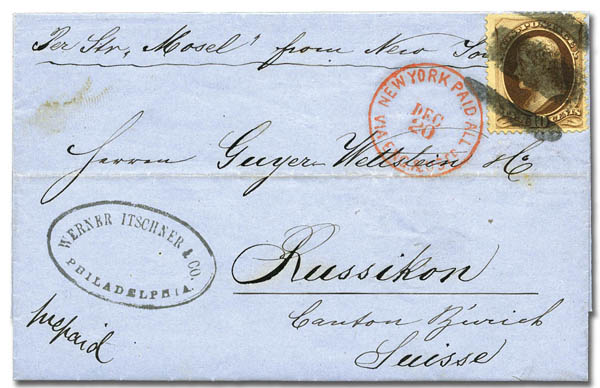 Per Str. "Mosel" from New York
NEW YORK PAID ALL
DEC
20
VIA
Herren Guyer Wettstein &Co
WERNER ITSCHNER & CO.
PHILADELPHIA.
Russikon
prepaid
Canton Zürich
Suisse